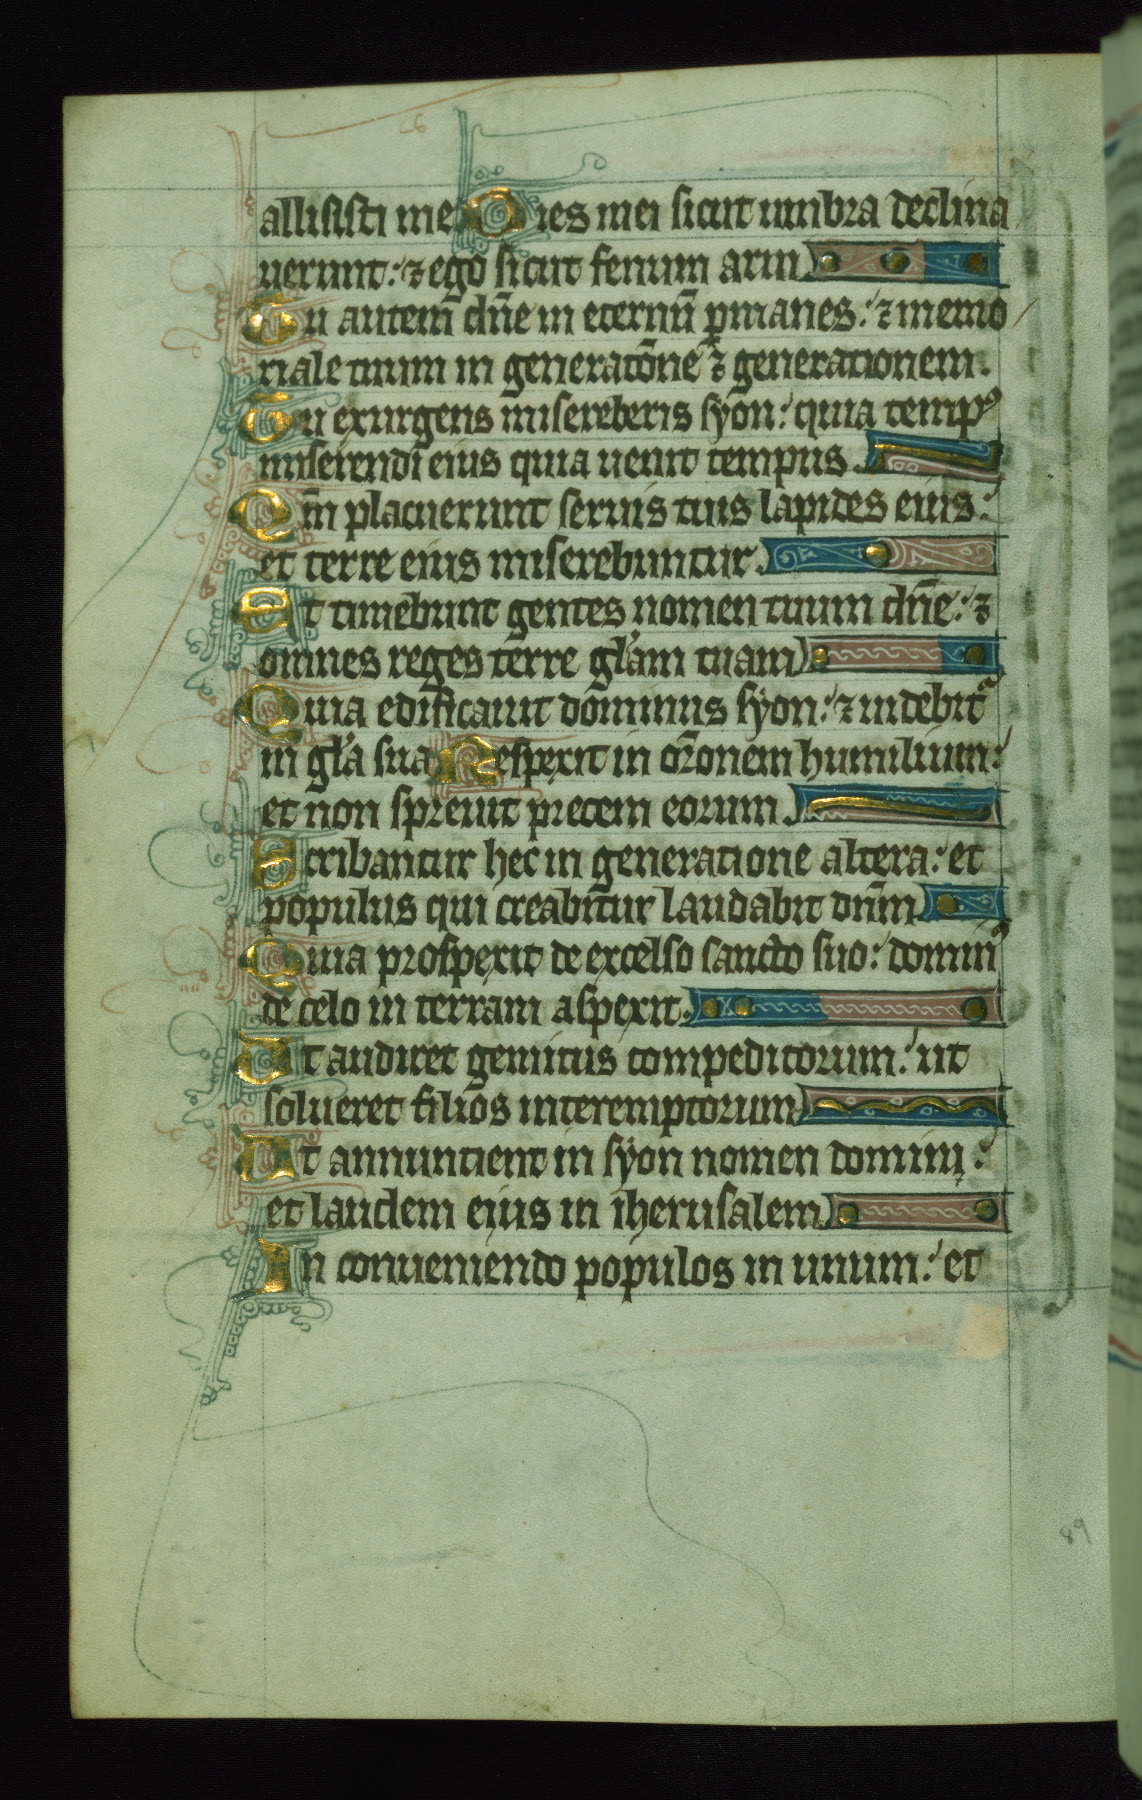 allisisti me Dies mei sicut umbra declina
uerunt: ⁊ ego sicut fenum arui
Tu autem̄ dn̄e in eternū ꝑmanes: ⁊ memo
riale tuum in generatōne ⁊ generationem.
Tu exurgens misereberis syon: quia tempꝰ
miserendi eius quia uenit tempus.
Qm̄ placuerunt seruis tuis lapides eius:
et terre eius miserebuntur.
Et timebunt gentes nomen tuum dn̄e: ⁊
omnes reges terre gl'am tuam
Quia edificauit dominus syon: ⁊ uidebit᷑
in gl'a sua Respexit in or̄onem humilium:
et non spreuit precem eorum.
Scribantur hec in generatione altera: et
populus qui creabitur laudabit dn̄m
Quia prospexit de excelso sancto suo: dominꝰ
de celo in terram aspexit.
Ut audiret gemitus compeditorum: ut
solueret filios interemptorum
Ut annuntient in syon nomen domini:
et laudem eius in iherusalem
In conueniendo populos in unum: et
89